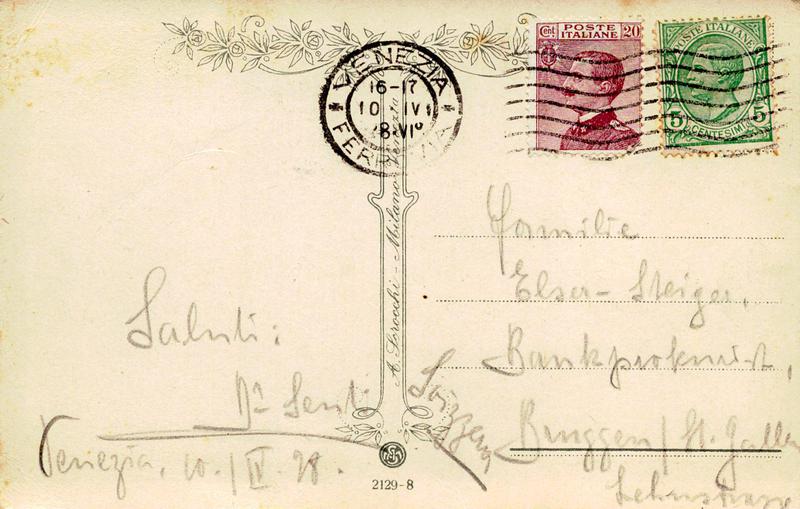 POSTE ITALIANE
Cent 20
POSTE ITALIANE
5 5
CENTESIMI
VENEZIA
16-17
10 IV
FERROVIA
A. Scrocchi - Milano-Venezia
Familie
Elser-Steiger,
Bankprokurist,
Bruggen / St. Gallen
Lehnstrasse
Svizzera
Saluti:
Dr Senti
Venezia, 10./IV. 28.
2129-8